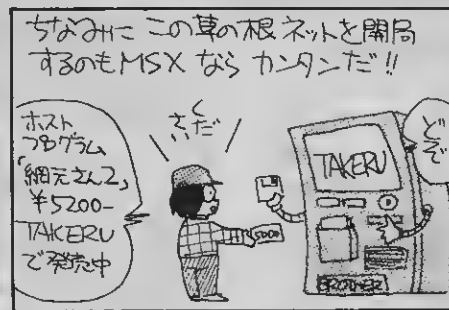 ちなみにこの草の根ネットを開局
するのもMSXならカンタンだ!!
ホスト
プログラム
「網元さん2」
¥5200-
TAKERU
で発売中
くだ
さい
TAKERU
どぞ
5000
BROTHER